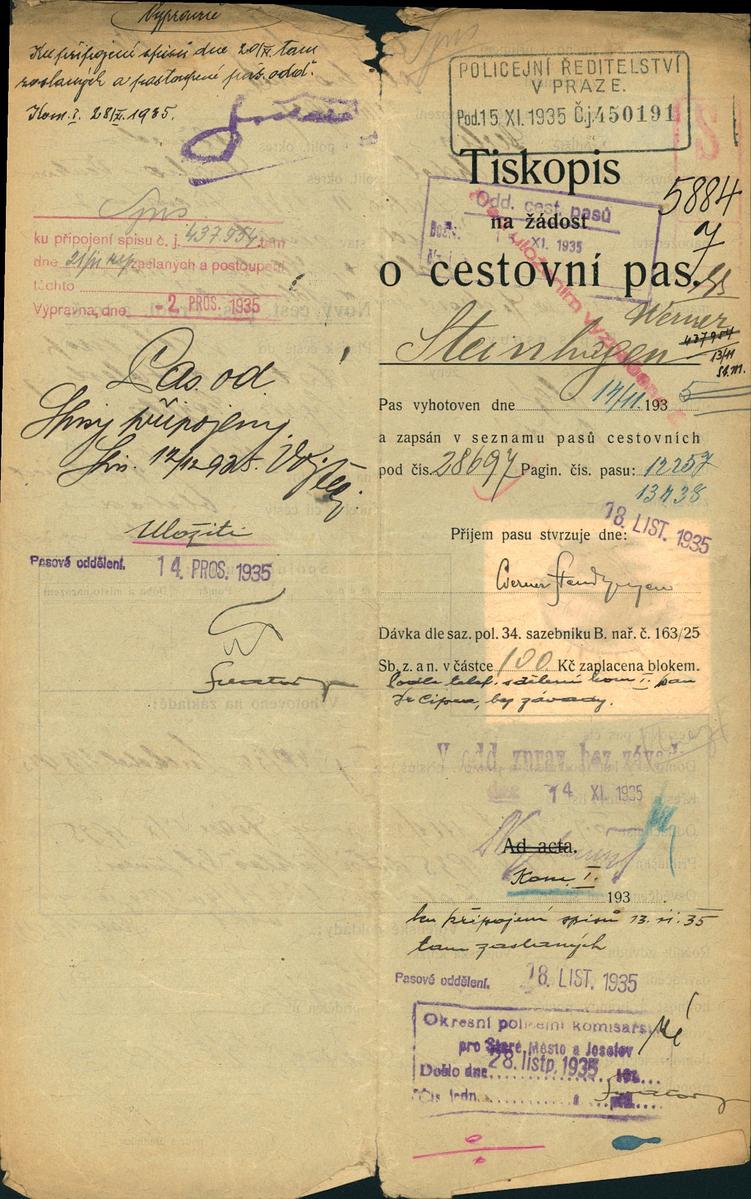 Vypraveno
Ku připojení spisů dne 20/XI. tam
zaslaných a postoupení pas. odd.
Kom. I. 28/XI. 1935.
Spis
ku připojení spisu č. j. 437.954 tam
dne 21/11 zaslaných a postoupení
těchto
Výpravna, dne - 2. PROS. 1935
Pas. od.
Spisy připojeny.
12/12 935.
Uložiti
Pasové oddělení. 14. PROS. 1935
POLICEJNÍ ŘEDITELSTVÍ
V PRAZE.
Pod. 15. XI. 1935 Č.j. 450191
Tiskopis
5884
7
Odd. cest. pasů
na žádost
XI. 1935
o cestovní pas.
Werner
437954
13/11
Pas vyhotoven dne 14/11. 1935
a zapsán v seznamu pasů cestovních
pod čís. 28697 Pagin. čís. pasu: 12257
13438
18. LIST. 1935
Příjem pasu stvrzuje dne:
Dávka dle saz. pol. 34. sazebníku B. nař. č. 163/25
Sb. z. a n. v částce 100 Kč zaplacena blokem.
Podle telef. sdělení kom. I. pan
Dr Cipra, bez závady.
V odd. zprav. bez závad
dne 14 XI. 1935
Ad acta.
Kom. I.
193
ku připojení spisů 13. XI. 35
tam zaslaných
Pasové oddělení. 18. LIST. 1935
Okresní policejní komisařst
pro Staré Město a Josefov
Došlo dne 28. listp. 1935
Čís. jedn.